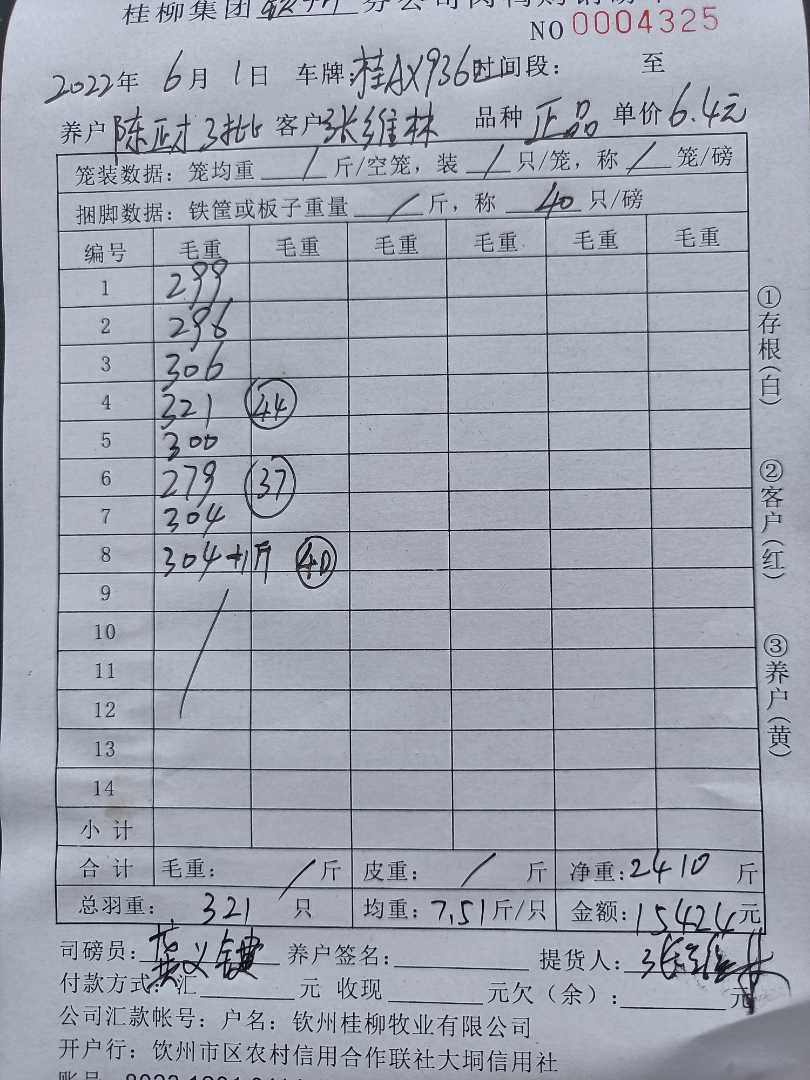 桂柳集团 钦州 分公司肉鸭购销磅单
NO 0004325
2022年 6月 1日 车牌:桂AX936时间段: 至
养户 陈正才3批 客户 张维林 品种 正品 单价 6.4元
笼装数据: 笼均重 / 斤/空笼, 装 / 只/笼, 称 / 笼/磅
捆脚数据: 铁筐或板子重量 / 斤, 称 40 只/磅
编号 毛重 毛重 毛重 毛重 毛重 毛重
1 299
2 296
3 306
4 321 44
5 300
6 279 37
7 304
8 304+1斤 40
9
10
11
12
13
14
小计
合计 毛重: / 斤 皮重: / 斤 净重:2410 斤
总羽重: 321 只 均重:7.51斤/只 金额:15424元
司磅员: 养户签名: 提货人:张维林
付款方式:汇 元 收现 元欠(余): 元
公司汇款帐号: 户名: 钦州桂柳牧业有限公司
开户行: 钦州市区农村信用合作联社大垌信用社
①存根(白)
②客户(红)
③养户(黄)